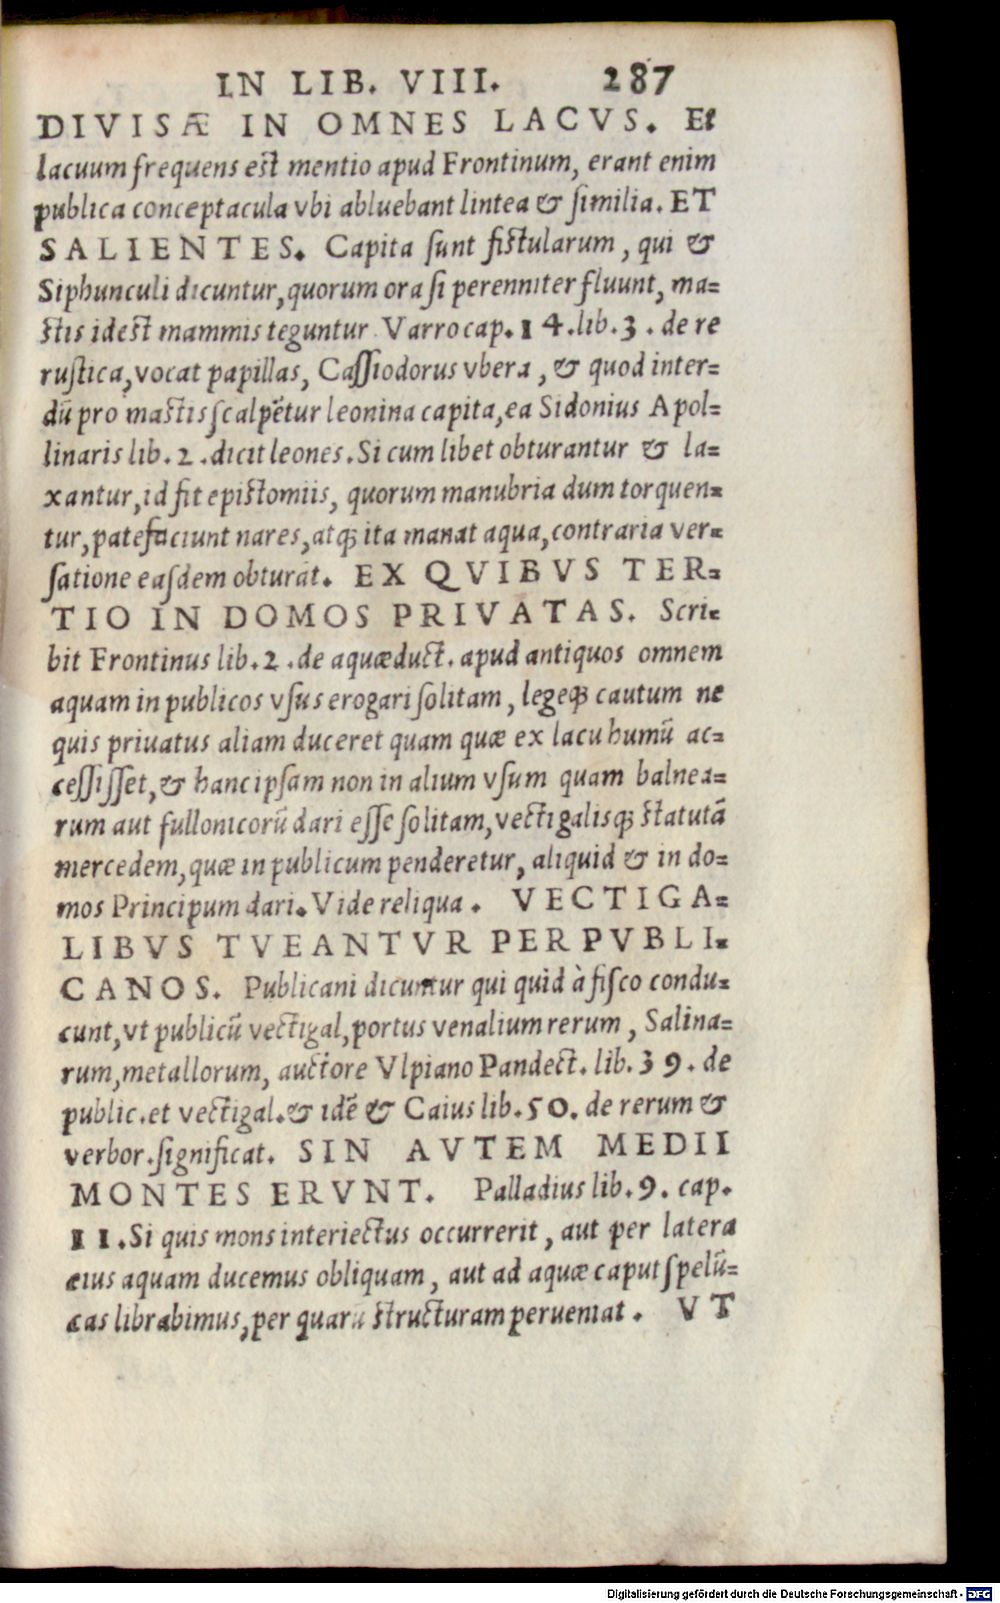 IN LIB. VIII. 287
DIVISÆ IN OMNES LACVS. Et
lacuum frequens est mentio apud Frontinum, erant enim
publica conceptacula vbi abluebant lintea & ſimilia. ET
SALIENTES. Capita ſunt fistularum, qui &
Siphunculi dicuntur, quorum ora ſi perenniter fluunt, ma=
stis idest mammis teguntur. Varro cap. 14. lib. 3. de re
ruſtica, vocat papillas, Caſſiodorus vbera, & quod inter=
dū pro mastis ſcalpētur leonina capita, ea Sidonius Apol=
linaris lib. 2. dicit leones. Si cum libet obturantur & la=
xantur, id fit epistomiis, quorum manubria dum torquen=
tur, patefaciunt nares, atq; ita manat aqua, contraria ver=
ſatione eaſdem obturāt. EX QVIBVS TER=
TIO IN DOMOS PRIVATAS. Scri=
bit Frontinus lib. 2. de aquæduct. apud antiquos omnem
aquam in publicos vſus erogari ſolitam, legeq; cautum ne
quis priuatus aliam duceret quam quæ ex lacu humū ac=
ceſſiſſet, & hanc ipſam non in alium vſum quam balnea=
rum aut fullonicorū dari eſſe ſolitam, vectigalisq; statutā
mercedem, quæ in publicum penderetur, aliquid & in do=
mos Principum dari. Vide reliqua. VECTIGA=
LIBVS TVEANTVR PER PVBLI=
CANOS. Publicani dicuntur qui quid à fiſco condu=
cunt, vt publicū vectigal, portus venalium rerum, Salina=
rum, metallorum, auctore Vlpiano Pandect. lib. 39. de
public. et vectigal. & idē & Caius lib. 50. de rerum &
verbor. ſignificat. SIN AVTEM MEDII
MONTES ERVNT. Palladius lib. 9. cap.
11. Si quis mons interiectus occurrerit, aut per latera
eius aquam ducemus obliquam, aut ad aquæ caput ſpelū=
cas librabimus, per quarū structuram perueniat. VT
Digitalisierung gefördert durch die Deutsche Forschungsgemeinschaft - DFG